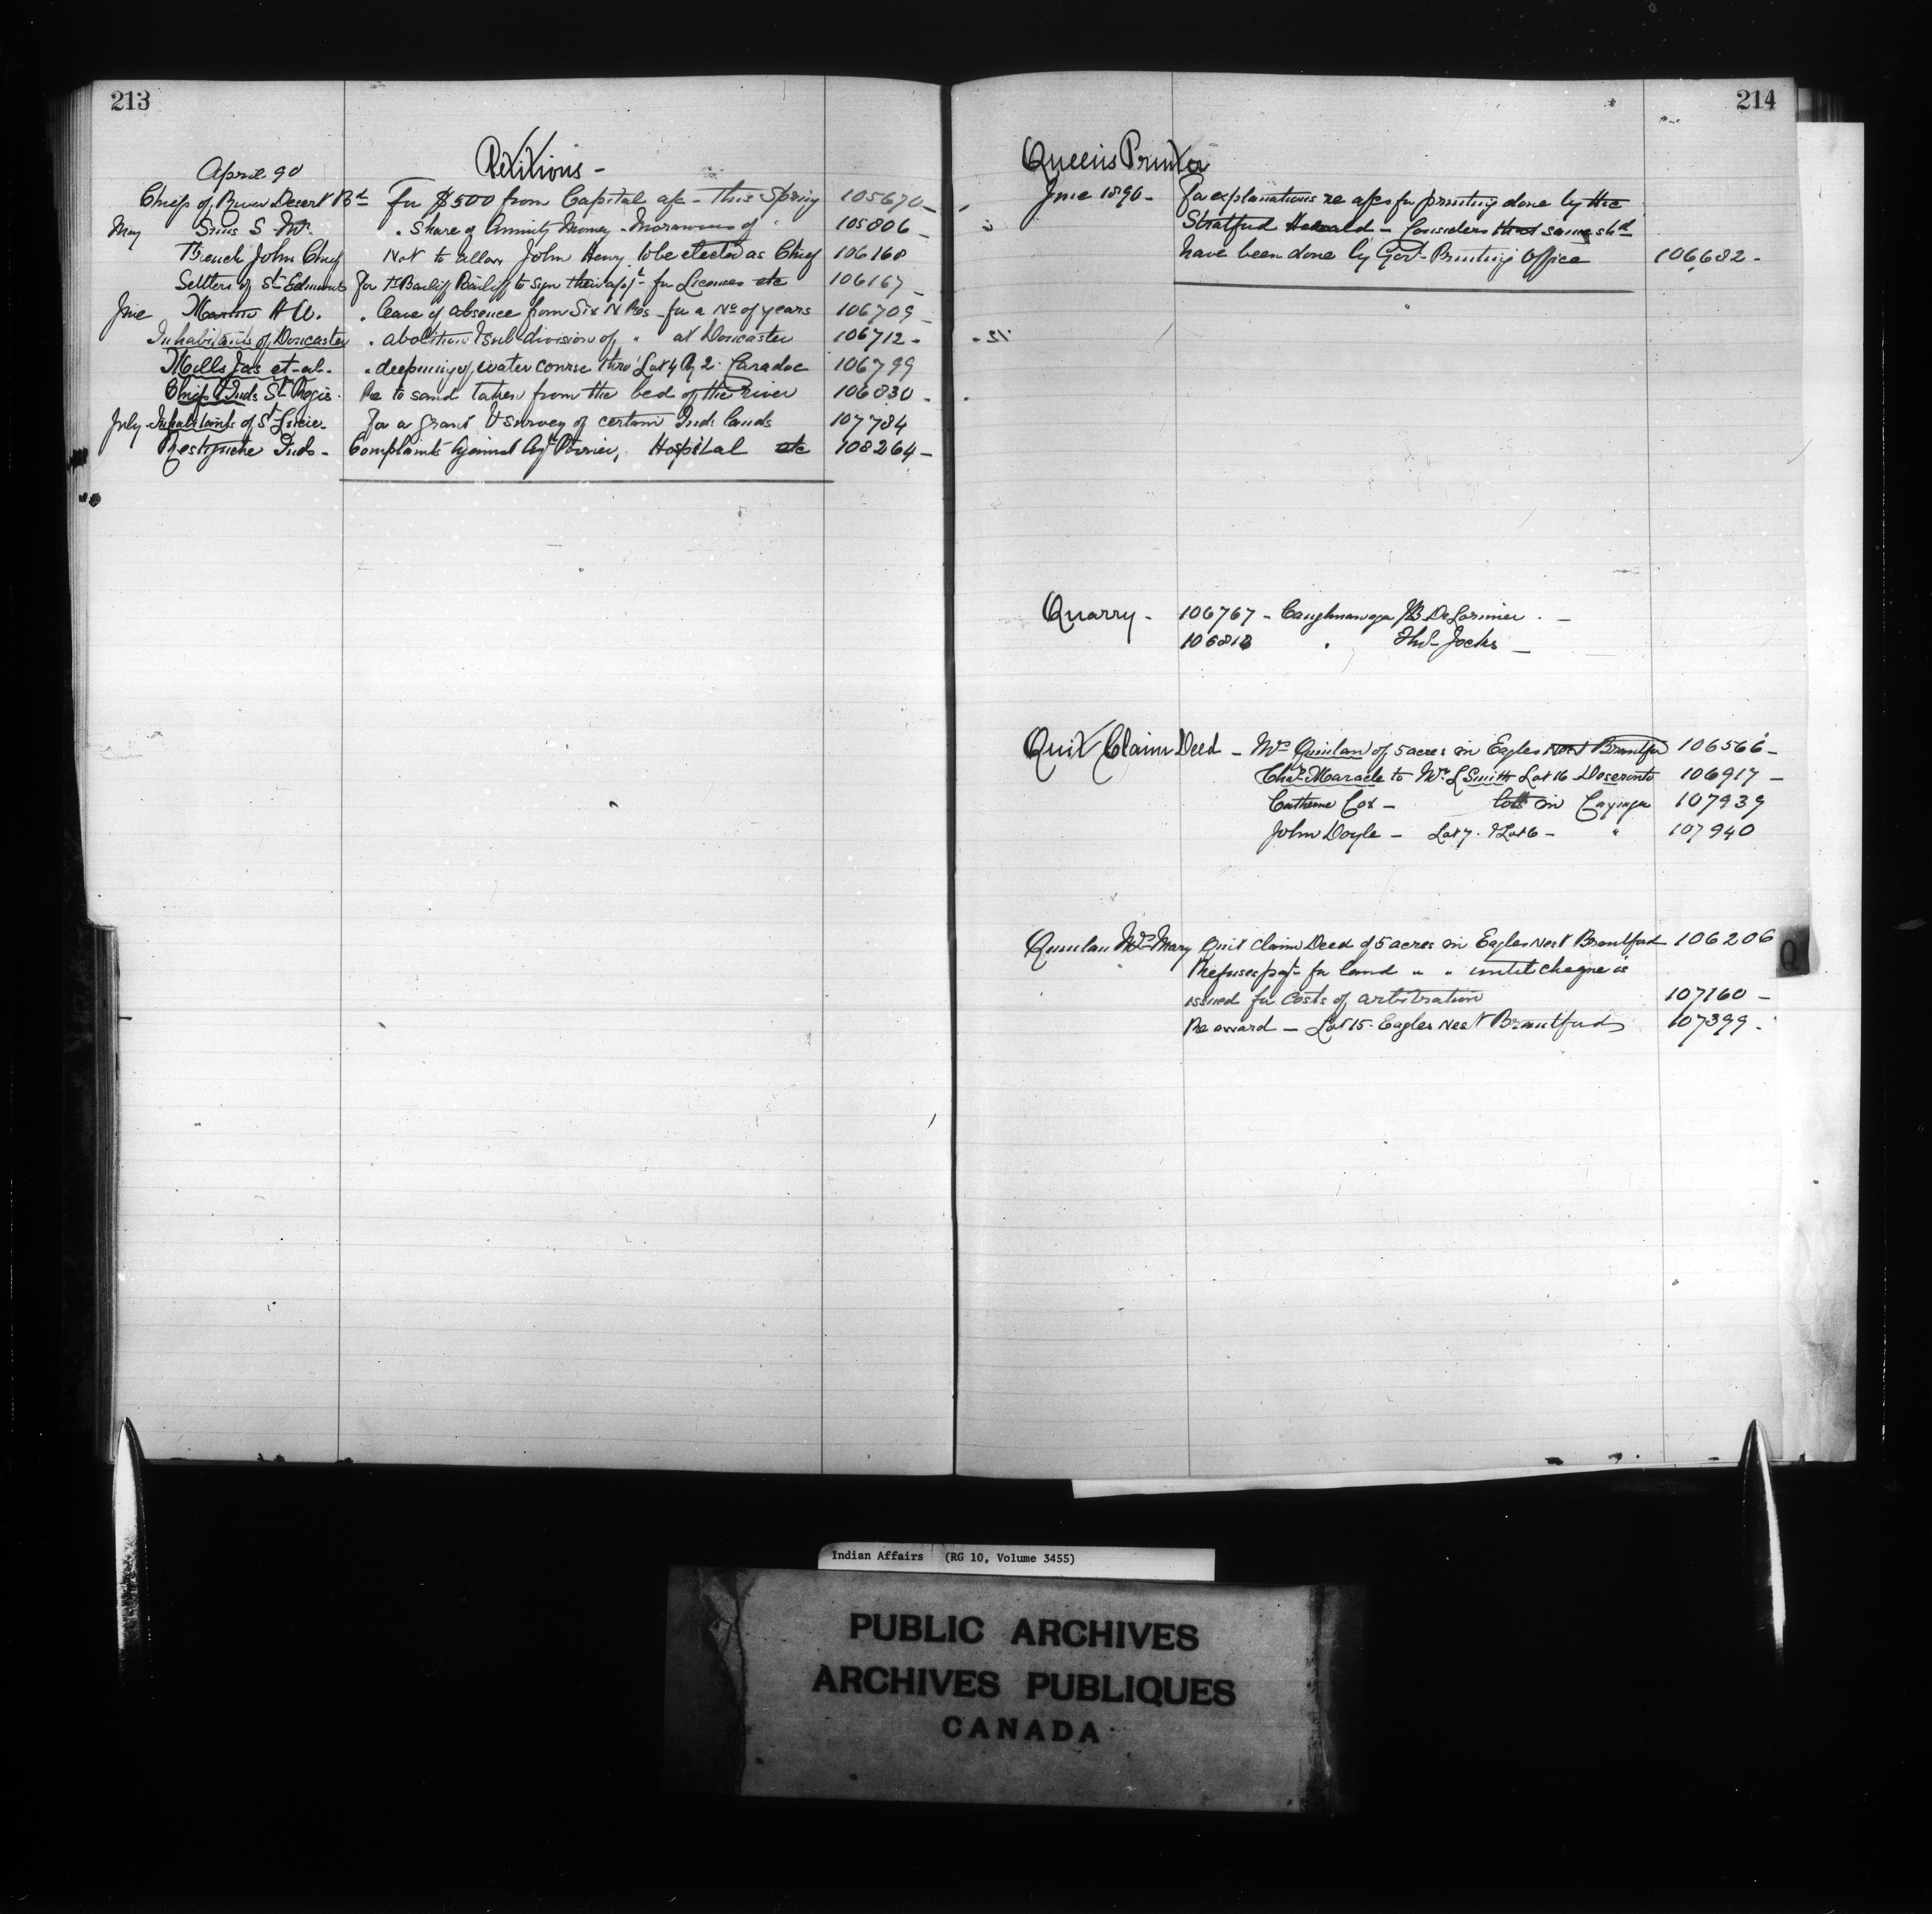 213
Petitions -
April 90
Chief of River Desert Bd For $500 from Capital a/c - this Spring 105670 -
May Sims S Mr. " Share of Annuity Money - Moravians of 105806 -
French John Chief Not to allow John Henry to be elected as Chief 106168
Settlers of St Edmunds For Bailiff to sign their appt for Licenses etc 106167 -
June Martin A W. " leave of absence from Six N Res - for a No of years 106709 -
Inhabitants of Doncaster " abolition & subdivision of " at Doncaster 106712 -
Mills Jas et-al - " deepening of water course thro' Lot 4 Rg 2. Caradoc 106799
Chiefs & Inds St Regis - Re to sand taken from the bed of the river 106830 -
July Inhabitants of St Lucie - For a grant & survey of certain Ind. lands 107784
Restigouche Inds - Complaints against Agt Poirier, Hospital etc 108264 -
214
Queen's Printer
June 1890 - For explanations re a/cs for printing done by the
Stratford Herald - Considers that same shd
have been done by Govt Printing Office 106682 -
Quarry - 106767 - Caughnawaga JB DeLorimier -
106818 " Thos Jocks -
Quit Claim Deed - Mrs Quinlan of 5 acres in Eagles Nest Brantford 106566 -
Chas Maracle to Mr. L Smith Lot 16 Deseronto 106917 -
Catherine Cox - lots in Cayuga 107939
John Doyle - Lot 7. & Lot 6 - " 107940
Quinlan Mrs Mary Quit Claim Deed of 5 acres in Eagles Nest Brantford 106206
Refuses payt for land " " until cheque is
issued for costs of arbitration 107160 -
Re award - Lot 15. Eagles Nest Brantford 107399 -
Q
Indian Affairs (RG 10, Volume 3455)
PUBLIC ARCHIVES
ARCHIVES PUBLIQUES
CANADA